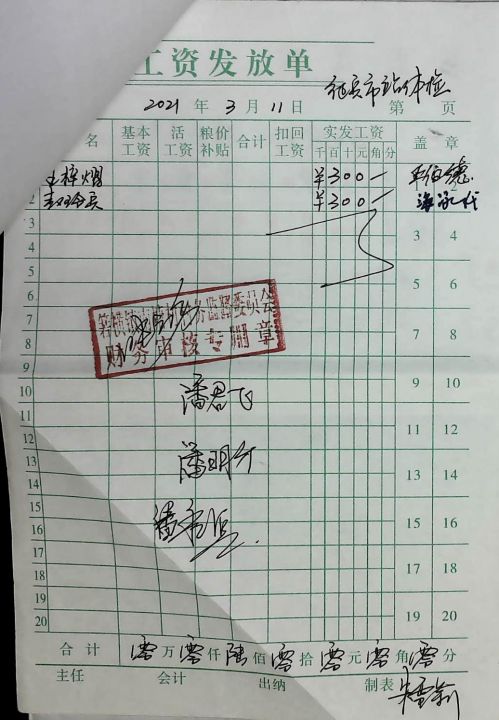 工资发放单
2021 年 3 月 11 日 征兵市站体检 第 页
名 基本工资 活工资 粮价补贴 合计 扣回工资 实发工资 千百十元角分 盖章
王梓熠 ¥300—
2 ¥300—
3 3 4
4
5 5 6
6
7 7 8
务监督委员会
财务审核专用章
8
9 9 10
10 潘君飞
11 11 12
12 潘明
13 13 14
14
15 15 16
16
17 17 18
18
19 19 20
20
合计 零万零仟陆佰零拾零元零角零分
主任 会计 出纳 制表